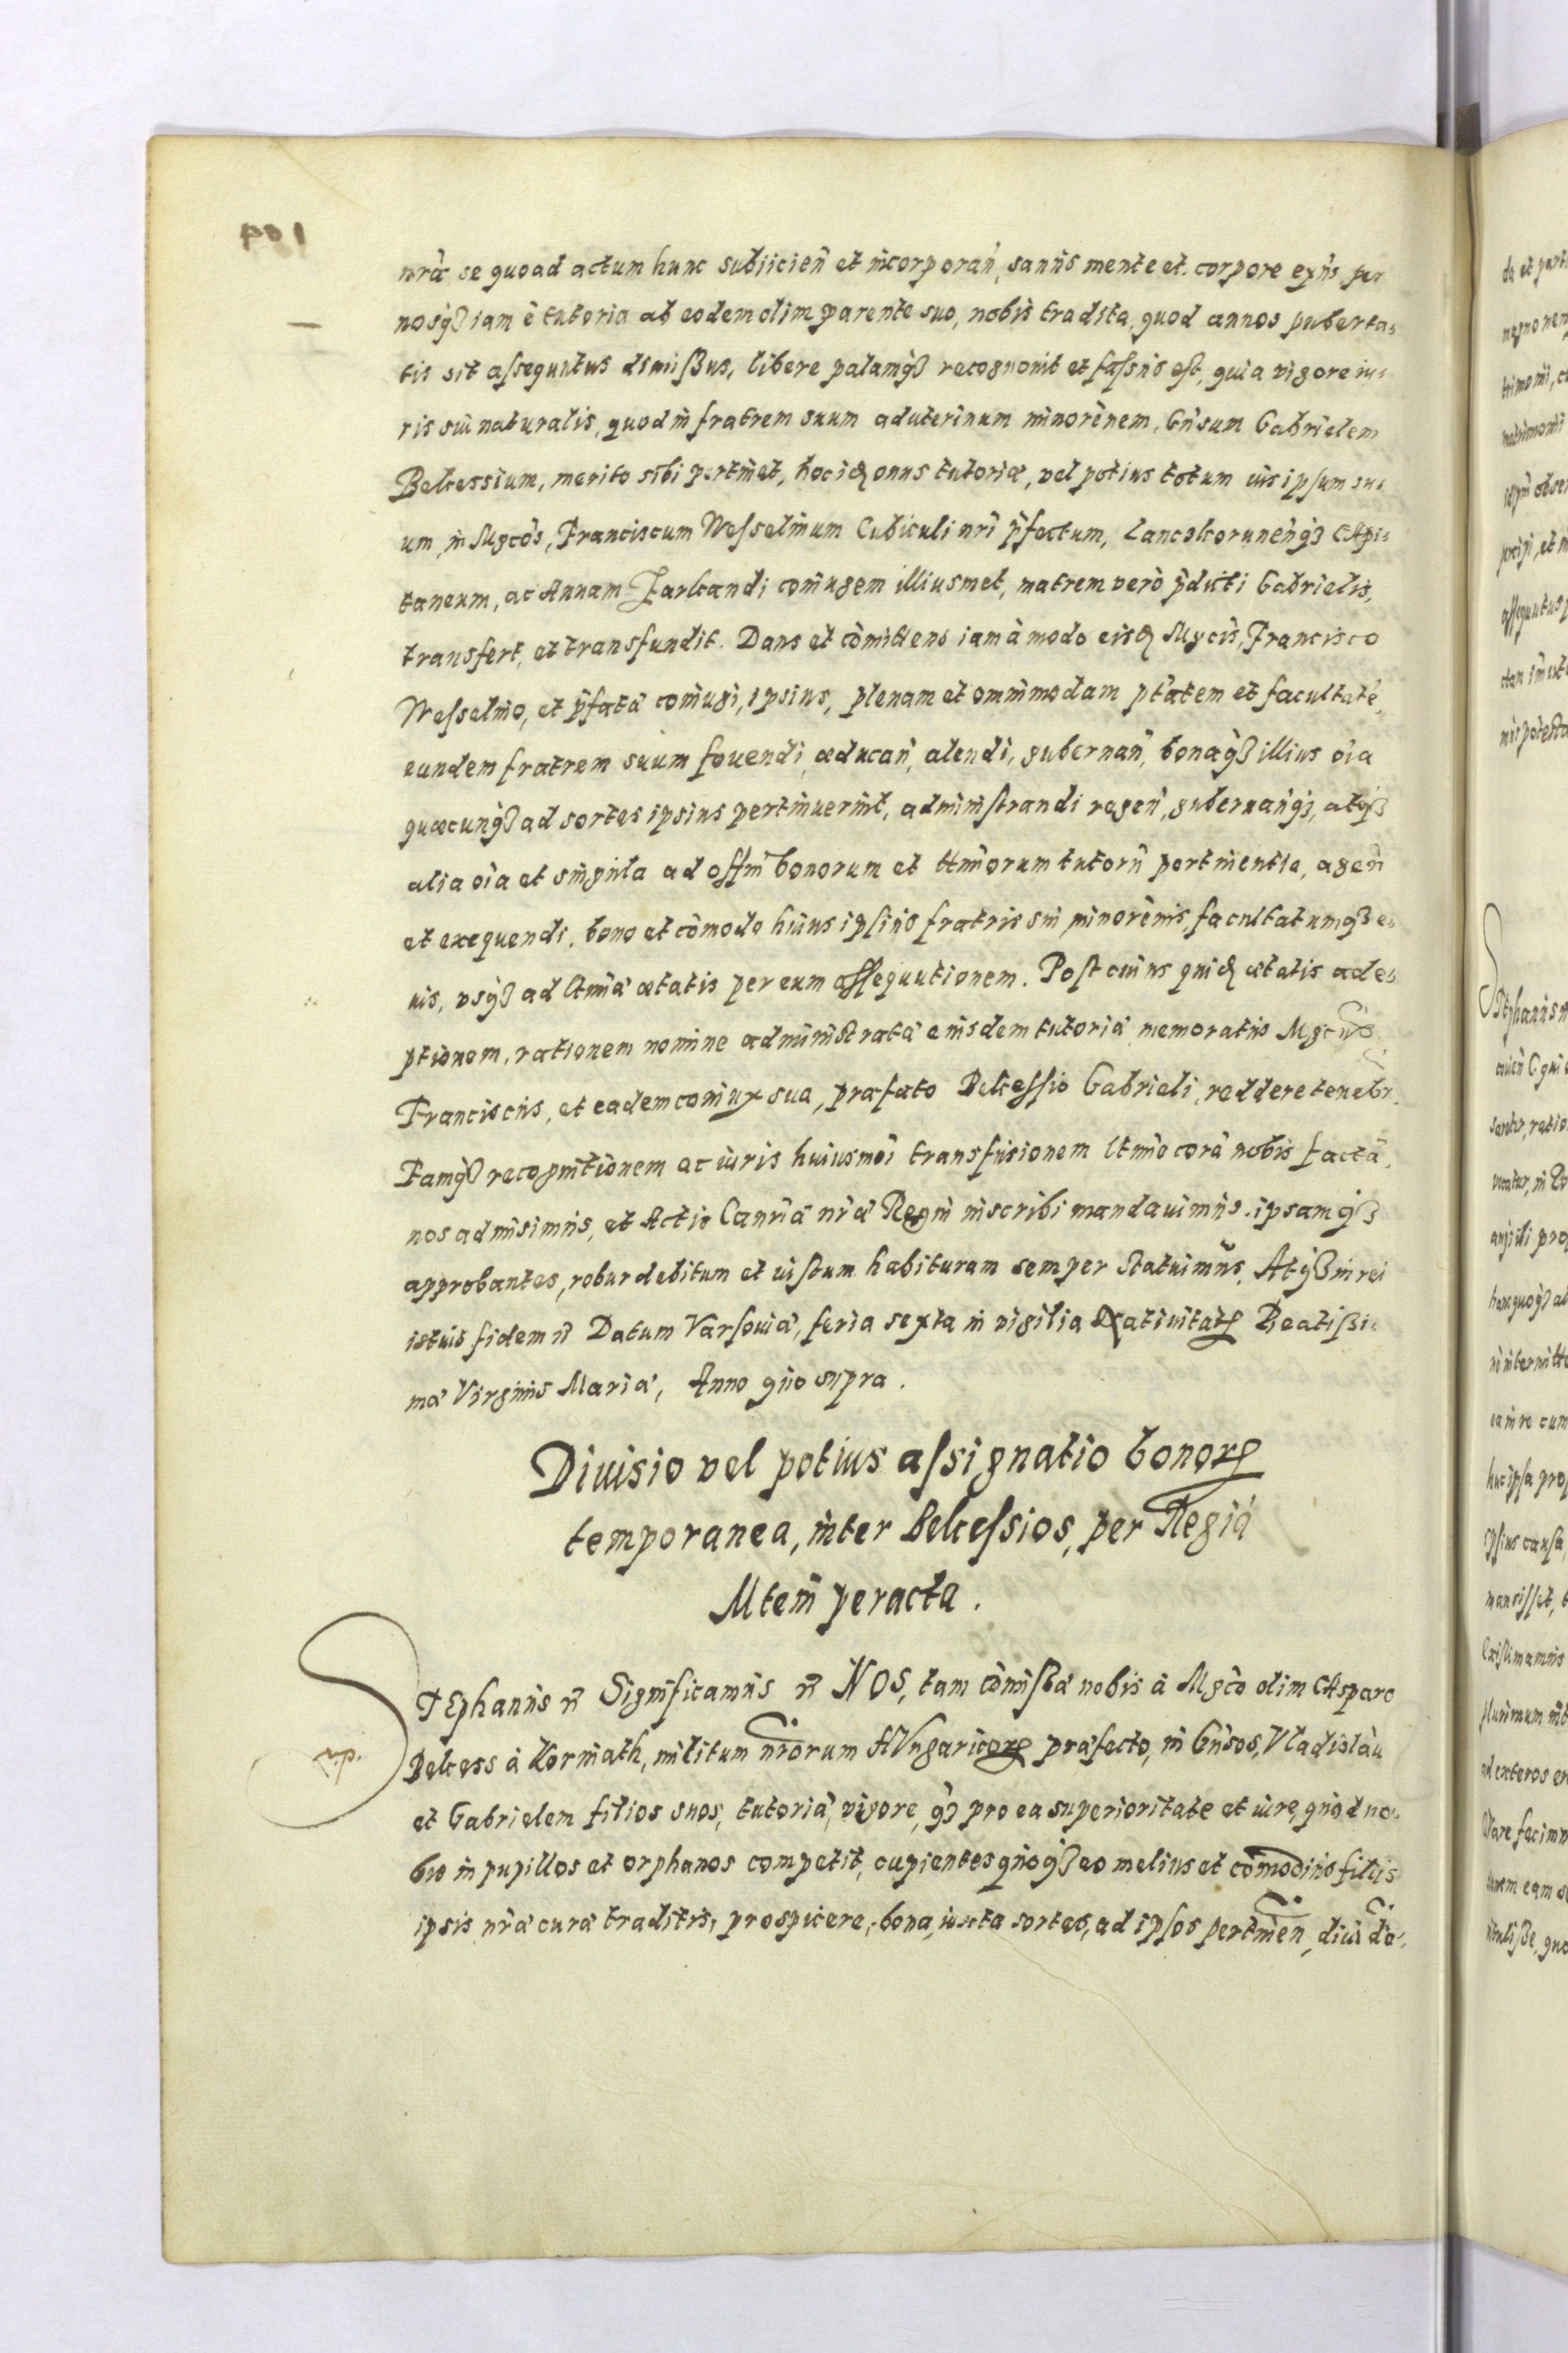 104
nrã se quoad actum hunc subiicień et incorporań, sanus mente et corpore exñs per
nosq3 iam è tutoria ab eodem olim parente suo, nobis tradita, quod annos puberta-
tis sit assequutus dimißus, libere palamq3 recognouit et fassus est, quia vigore iu-
ris sui naturalis, quod in fratrem suum aduterinum minorenem, Gñsum Gabrielem
Bekessium, merito sibi pertinet, hoc id onus tutoriæ, vel potius totum ius ipsum su-
um, in Mgcos, Franciscum Wesselinum Cubiculi nri pfectum, Lanczkorunenq3 Capi-
taneum, ac Annam Sarkandi coniugem illiusmet, matrem verò pdicti Gabrielis,
transfert, et transfundit. Dans et comittens iam à modo eisd Mgcis, Francisco
Wesselino, et pfatæ coniugi, ipsius, plenam et omnimodam ptatem et facultatẽ,
eundem fratrem suum fouendi, æducań, alendi, gubernań, bonaq3 illius oĩa
quæcunq3 ad sortes ipsius pertinuerint, administrandi regeń, gubernanq3, atq3
alia oĩa et singula ad offm bonorum et lttimorum tutorũ pertinentia, ageń
et exequendi, bono et comodo huius ipsius fratris sui minorenis, facultatumq3 e-
uis, vsq3 ad ltimã ætatis per eum assequutionem. Post cuius quid ætatis ade-
ptionem, rationem nomine administratæ eiusdem tutoriæ memoratus Mgcus
Franciscus, et eadem coniux sua, præfato Bekessio Gabrieli, reddere tenebr.
Eamq3 recognitionem ac iuris huiusmoi transfusionem ltime corã nobis factã,
nos admisimus, et Actis Canriæ nræ Regni inscribi mandauimus. ipsamq3
approbantes, robur debitum et iustum habituram semper statuimus. Atq3 in rei
istius fidem ñ Datum Varsouiæ, feria sexta in vigilia Natiuitatis Beatißi-
mæ Virginis Mariæ, Anno quo supra.
Diuisio vel potius assignatio bonorꝝ
temporanea, inter Bekessios, per Regiã
Mtem peracta.
STEphanus ñ Significamus ñ NOS, tam comißa nobis à Mgco olim Casparo
Bekess à Korniath, militum nrorum HVngaricorꝝ præfecto, in Gñsos, Vladislaũ
et Gabrielem filios suos, tutoriæ, vigore, q3 pro ea superioritate et iure, quod no-
bis in pupillos et orphanos competit, cupientes quoq3 eo melius et comodius filijs
ipsis nræ curæ traditis, prospicere, bona, iuxta sortes, ad ipsos pertinen, diuide-